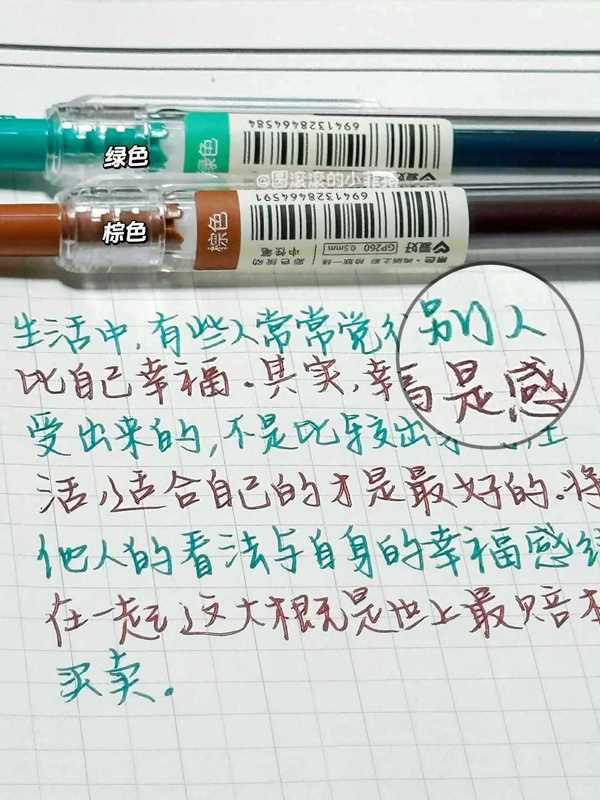 绿色
绿色
6941328464584
爱好
@圆滚滚的小菲
棕色
棕色
6941328464591
中性笔
GP260 0.5mm
爱好
生活中,有些人常常觉得别人
比自己幸福.其实,幸福是感
受出来的,不是比较出来
活,适合自己的才是最好的.将
他人的看法与自身的幸福感
在一起 这大概是世上最赔本
买卖.